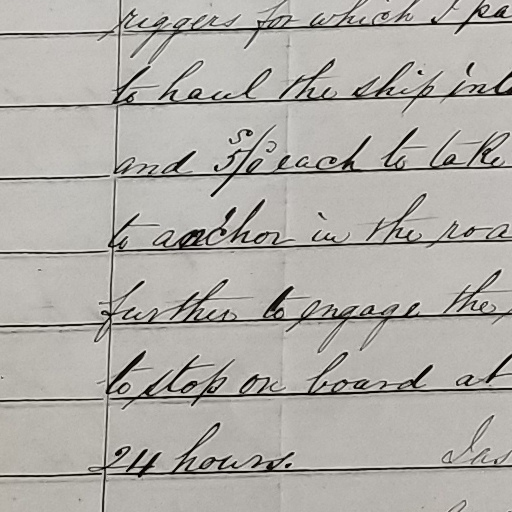 riggers for which I pa
to haul the ship int
and 5/0 each to take
to anchor in the roa
further to engage the
to stop on board at
24 hours. Jas